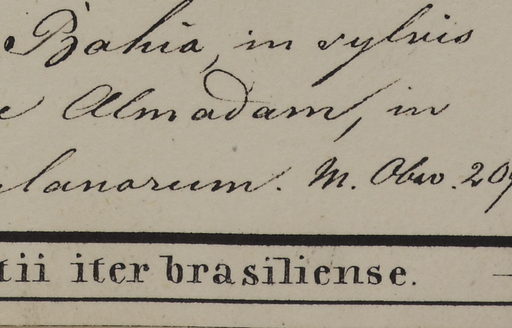 Bahia, in sylvis
e Almadam, in
lanorum. M. Obs. 209
tii iter brasiliense.